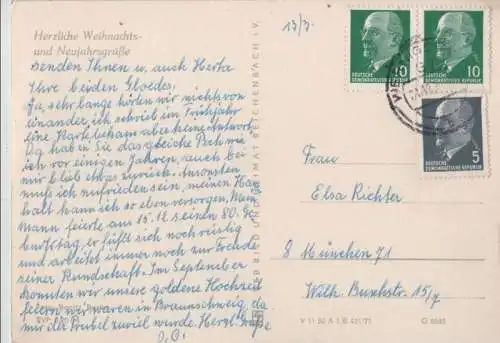 Herzliche Weihnachts-
und Neujahrsgrüße
senden Ihnen u. auch Herta
Ihre beiden Gloedes.
Ja, sehr lange hören wir nichts von
einander, ich schrieb im Frühjahr
eine Karte bekam aber keine Antwort.
Da haben Sie das gleiche Pech wie
ich vor einigen Jahren, auch bei
mir blieb etwas zurück. Ansonsten
muß ich zufrieden sein, meinen Haus
halt kann ich so eben versorgen. Mein
Mann feierte am 15.12. seinen 80. Ge
burtstag, er fühlt sich noch rüstig
und arbeitet immer noch zur Freude
seiner Kundschaft. Im September
konnten wir unsere goldene Hochzeit
feiern wir waren in Braunschweig, da
mir der Trubel zuviel wurde. Herzl. Grüße
D. O.
BILD UND HEIMAT REICHENBACH I. V.
13/3.
10
DEUTSCHE
DEMOKRATISCHE REPUBLIK
10
DEUTSCHE
DEMOKRATISCHE REPUBLIK
5
DEUTSCHE
DEMOKRATISCHE REPUBLIK
Frau
Elsa Richter
8 München 71
Wilh. Buschstr. 15/7
V 11 50 A 1/B